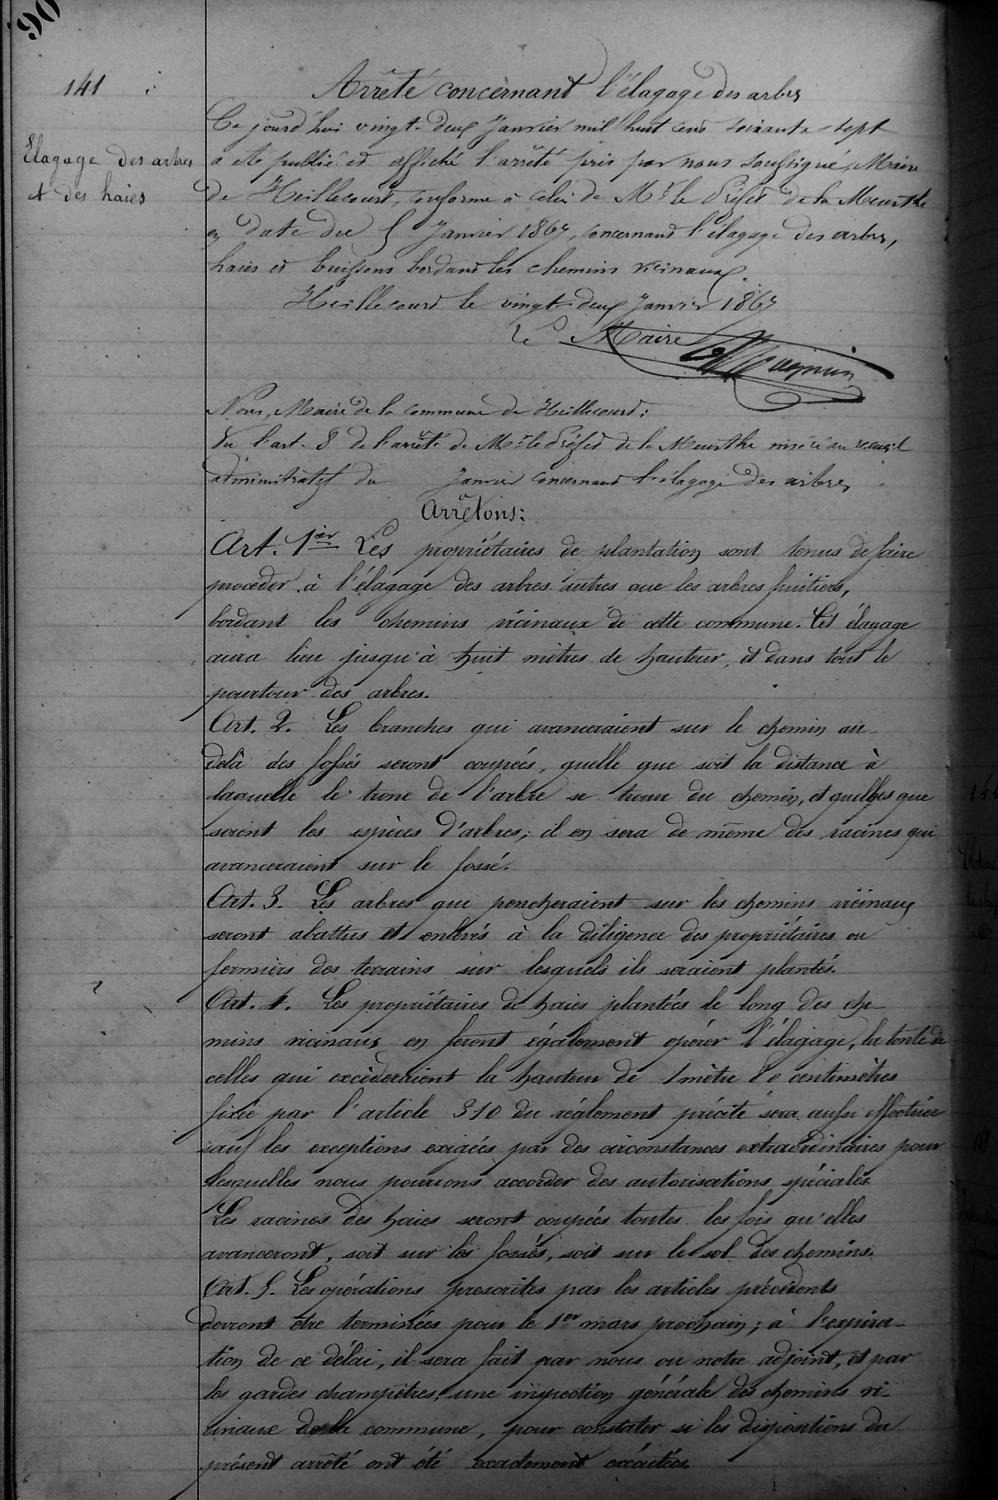 90
141
Elagage des arbres
et des haies
Arrêté concernant l'élagage des arbres
Ce jourd'hui vingt-deux Janvier mil huit cent soixante-sept
a été publié et affiché l'arrêté pris par nous soussigné, Maire
de Heillecourt, conforme à celui de Mr le Préfet de la Meurthe
en date du 5 Janvier 1867, concernant l'élagage des arbres,
haies et buissons bordant les chemins vicinaux.
Heillecourt le vingt-deux Janvier 1867
Le Maire
Nous, Maire de la commune de Heillecourt;
Vu l'art. 8 de l'arrêté de Mr le Préfet de la Meurthe inséré au recueil
administratif du Janvier concernant l'élagage des arbres
Arrêtons:
Art. 1er Les propriétaires de plantation sont tenus de faire
procéder à l'élagage des arbres autres que les arbres fruitiers,
bordant les chemins vicinaux de cette commune. Cet élagage
aura lieu jusqu'à huit mètres de hauteur, et dans tout le
pourtour des arbres.
Art. 2. Les branches qui avanceraient sur le chemin au-
delà des fossés seront coupées, quelle que soit la distance à
laquelle le tronc de l'arbre se trouve du chemin, et quelles que
soient les espèces d'arbres; il en sera de même des racines qui
avanceraient sur le fossé.
Art. 3. Les arbres qui pencheraient sur les chemins vicinaux
seront abattus et enlevés à la diligence des propriétaires ou
fermiers des terrains sur lesquels ils seraient plantés.
Art. 4. Les propriétaires de haies plantées le long des che-
mins vicinaux en feront également opérer l'élagage, la tonte de
celles qui excèderaient la hauteur de 1 mètre 80 centimètres
fixée par l'article 310 du réglement précité sera aussi effectuée
sauf les exceptions exigées par des circonstances extraordinaires pour
lesquelles nous pourrons accorder des autorisations spéciales
Les racines des haies seront coupées toutes les fois qu'elles
avanceront, soit sur les fossés, soit sur le sol des chemins.
Art. 5. Les opérations prescrites par les articles précédents
devront être terminées pour le 1er mars prochain; à l'expira-
tion de ce délai, il sera fait par nous ou notre adjoint, et par
les gardes champêtres, une inspection générale des chemins vi-
cinaux de la commune, pour constater si les dispositions du
présent arrêté ont été exactement exécutées.